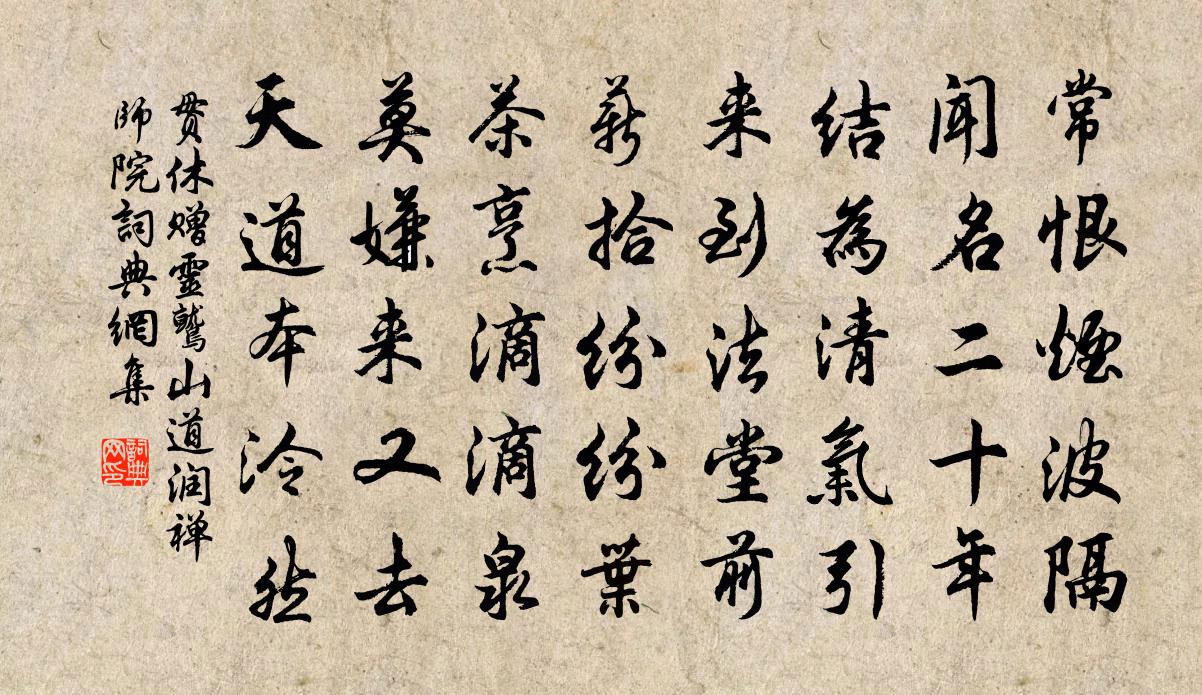 常恨煙波隔
闻名二十年
结為清氣引
来到法堂前
薪拾紛紛葉
茶烹滴滴泉
莫嫌来又去
天道本泠然
贯休赠靈鷲山道润禅
師院詞典網集
詞典网印